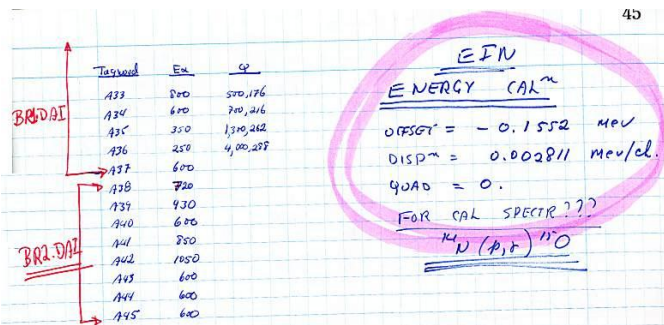 45
Tagword Ex φ
A33 800 500,176
A34 600 700,216
A35 350 1,300,262
A36 250 4,000,288
A37 600
A38 720
A39 430
A40 600
A41 850
A42 1050
A43 600
A44 600
A45 600
BR1.DAI
BR2.DAI
EIN
ENERGY CALⁿ
OFFSET = - 0.1552 MeV
DISPⁿ = 0.002811 MeV/cl.
QUAD = 0.
FOR CAL SPECTR???
¹⁴N (p,γ) ¹⁵O